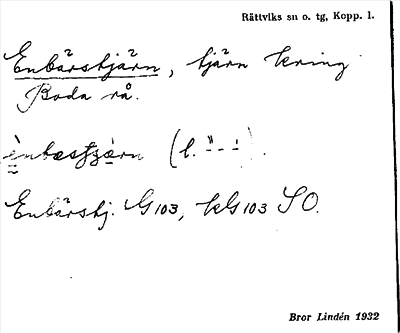 Rättviks sn o. tg, Kopp. l.
Enbärstjärn, tjärn kring
Boda rå.
(l.
Enbärstj. G103, kG103 SO.
Bror Lindén 1932